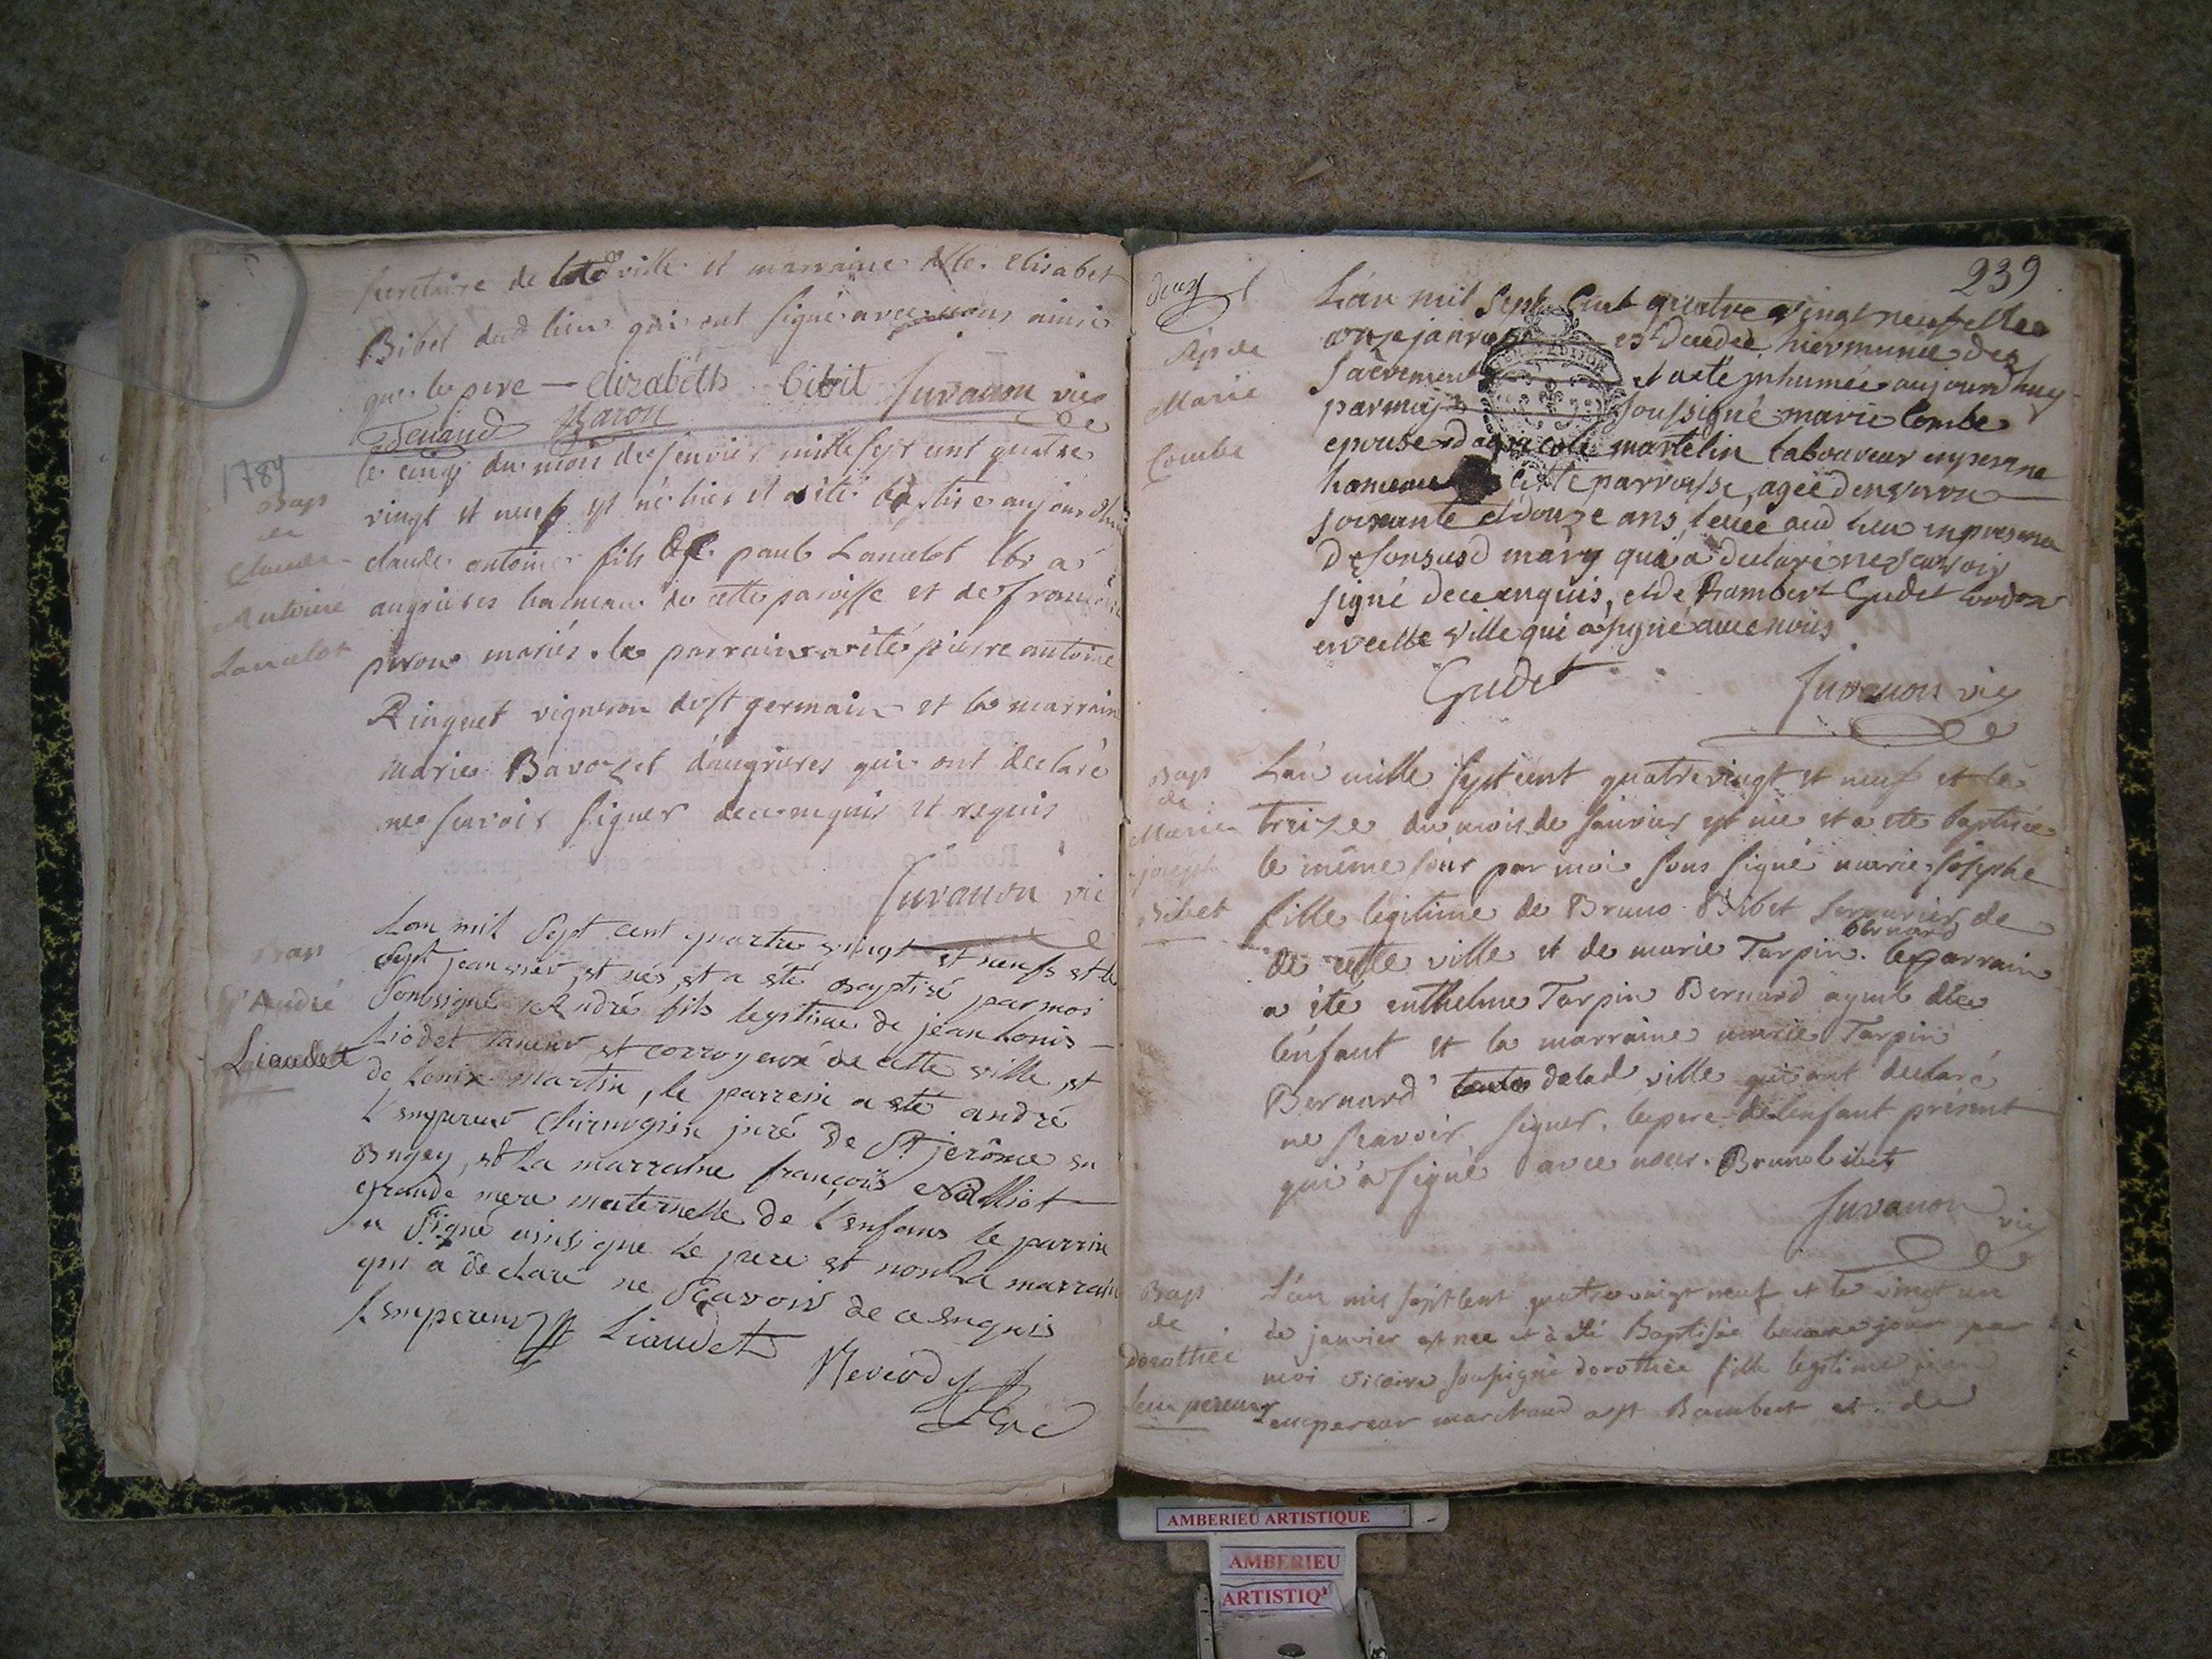 secretaire de lade ville et marraine dlle elisabet
Bibet dud lieu qui ont signé avec nous ainsi
que le pere — elizabeth bibet Juvanon vic
Tenand Baron
1789
Bap
de
Claude
Antoine
Lancelot
le cinq du mois de Janvier mille sept cent quatre
vingt et neuf est né hier et a été batisé aujourdhui
claude antoine fils de paul Lancelot
angrieres hameau de cette paroisse et de
peron mariés. le parrain a été pierre antoine
Ringuet vigneron de st germain et la marraine
marie Bavozet d'angrieres qui ont declaré
ne scavoir signer de ce enquis et requis
Juvanon vic
Bap
d'André
Liaudet
Lan mil sept cent quatre vingt et neufs et le
sept jeanvier, est nés et a été baptisé par moi
soussigné André fils legitime de jean Louis
Liodet taneur et corroyeur de cette ville et
de Louise Martin, le parrein a eté andré
Lempereur chirurgien juré de St jerôme en
Bugey, et La marraine françois
grande mere maternelle de l'enfans le parrin
a signé ainsi que le pere et non La marraine
qui a déclaré ne scavoir de ce enquis
Lempereur Liaudet
239
deux
Sep de
Marie
Combe
L'an mil sept cent quatre vingt neuf et le
onze janvier est decedée hier munie des
sacrements et a eté inhumée aujourdhuy
par moy soussigné marie Combe
epouse d martelin laboureur
hameau cette parroisse, agée d'environ
soixante et douze ans levée aud lieu en presence
de son susd mary qui a declaré ne scavoir
signé de ce enquis, et de Rambert Gudet
en cette ville qui a signé avec nous
Gudet Juvanon vic
Bap
de
Marie
joseph
Bibet
L'an mille sept cent quatre vingt et neuf et le
treize du mois de Janvier est née et a ete baptisée
le même jour par moi sous signé marie josephe
fille legitime de Bruno Bibet serrurier de
de cette ville et de marie Tarpin bernard. le parrain
a été enthelme Tarpin Bernard ayeul de
lenfant et la marraine marie Tarpin
Bernard de lad ville qui ont declaré
ne scavoir signer. le pere de lenfant présent
qui a signé avec nous. Bruno bibet
Juvanon vic
Bap
de
dorothée
lempereur
L'an mil sept cent quatre vingt neuf et le vingt un
de janvier est née et à été Baptisée le meme jour par
moi vicaire soussigné dorothée fille legitime
Lempereur marchand a st Rambert et de
AMBERIEU ARTISTIQUE
AMBERIEU
ARTISTIQ